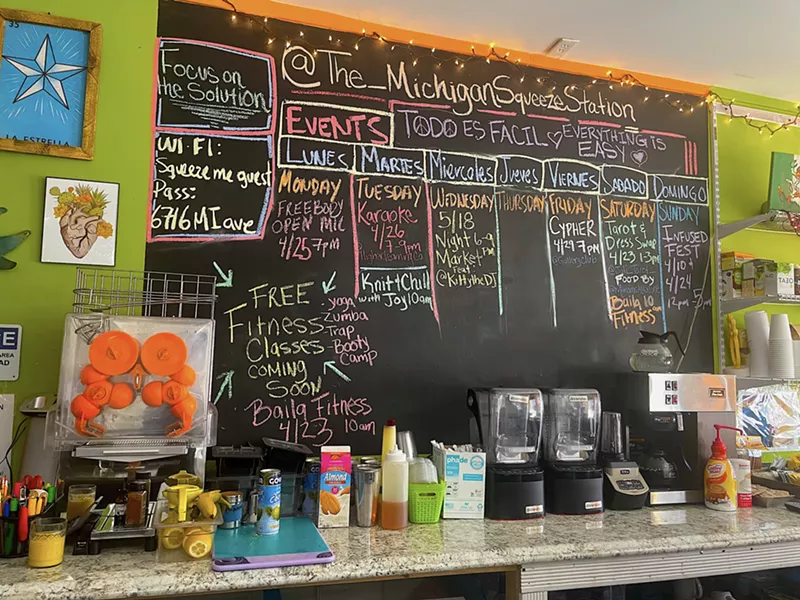 35
LA ESTRELLA
Focus on
the Solution
WI-FI:
Squeeze me guest
Pass:
6716MIave
@The_MichiganSqueezeStation
EVENTS
TODO ES FACIL
EVERYTHING IS
EASY
LUNES
MARTES
MIERCOLES
JUEVES
VIERNES
SABADO
DOMINGO
MONDAY
FREEBODY
OPEN MIC
4/25 7pm
TUESDAY
Karaoke
4/26
7-9pm
Knit+Chill
with Joy 10am
WEDNESDAY
5/18
Night 6-9
Market
Feat
@KittytheDJ
THURSDAY
FRIDAY
CYPHER
4/29 7pm
SATURDAY
Tarot &
Dress Swap
4/23 1-3pm
FOOD BY
Baila 10
Fitness am
SUNDAY
INFUSED
FEST
4/10 &
4/24
12pm
FREE
Fitness
Classes
COMING
SOON
yoga
Zumba
Trap
Booty
Camp
Baila Fitness
4/23 10am
almond
AREA